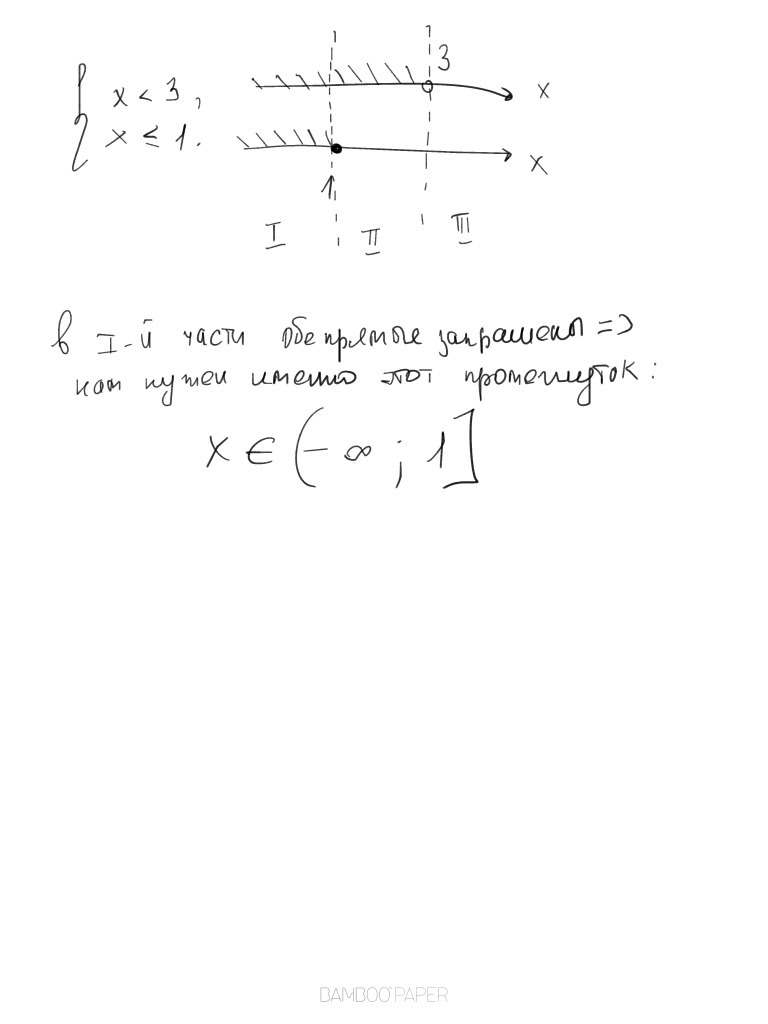 { x < 3,
x ≤ 1.
3
x
x
1
I II III
в I-й части обе прямые закрашены =>
нам нужен именно этот промежуток:
x ∈ (-∞; 1]
BAMBOO PAPER